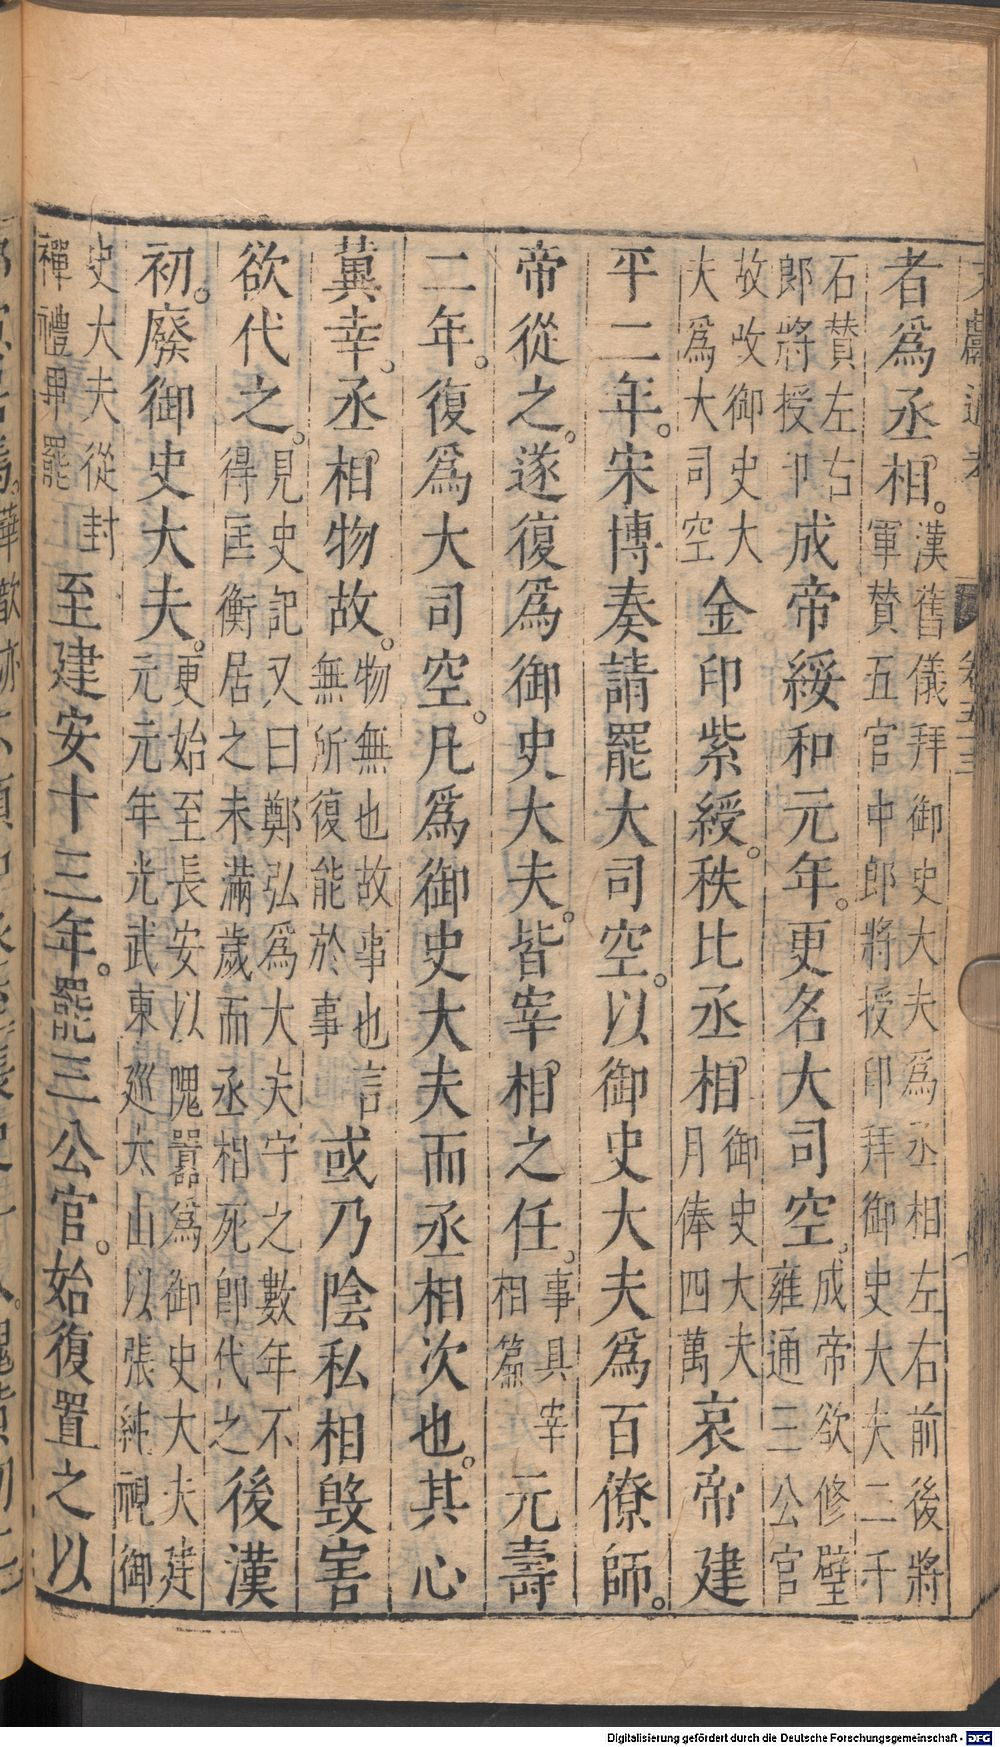 卷五十三
者爲丞相。漢舊儀拜御史大夫爲丞相左右前後將
軍贊五官中郎將授印拜御史大夫二千
石贊左右
郎將授卩成帝綏和元年。更名大司空。成帝欲修壁
雍通三公官
故改御史大
夫爲大司空金印紫綬。秩比丞相。御史大夫
月俸四萬哀帝建
平二年。宋博奏請罷大司空。以御史大夫爲百僚師。
帝從之。遂復爲御史大夫。皆宰相之任。事具宰
相篇元壽
二年。復爲大司空。凡爲御史大夫而丞相次也。其心
冀幸。丞相物故。物無也故事也言
無所復能於事或乃陰私相毀害
欲代之。見史記又曰鄭弘爲大夫守之數年不
得匡衡居之未滿歲而丞相死卽代之後漢
初。廢御史大夫。更始至長安以隗囂爲御史大夫建
元元年光武東巡太山以張純視御
史大夫從封
禪禮畢罷至建安十三年。罷三公官。始復置之以
Digitalisierung gefördert durch die Deutsche Forschungsgemeinschaft - DFG